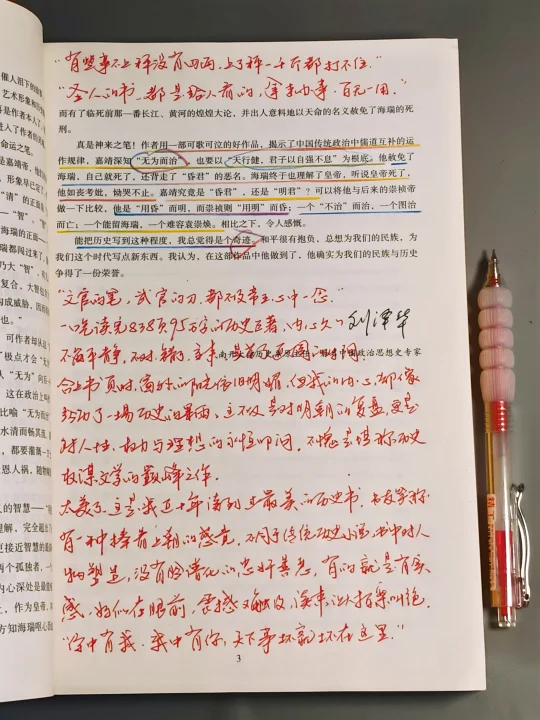 “有些事不上秤没有四两，上了秤一千斤都打不住。”
“圣人的书，都是给人看的，拿来办事，百无一用。”
而有了临死前那一番长江、黄河的煌煌大论，并出人意料地以天命的名义赦免了海瑞的死
刑。
真是神来之笔！作者用一部可歌可泣的好作品，揭示了中国传统政治中儒道互补的运
作规律，嘉靖深知“无为而治”，也要以“天行健，君子以自强不息”为根底。他赦免了
海瑞，自己就死了，还背走了“昏君”的恶名。海瑞终于也理解了皇帝，听说皇帝死了，
他如丧考妣，恸哭不止。嘉靖究竟是“昏君”，还是“明君”？可以将他与后来的崇祯帝
做一下比较，他是“用昏”而明，而崇祯则“用明”而昏；一个“不治”而治，一个图治
而亡；一个能留海瑞，一个难容袁崇焕。相比之下，令人感慨。
能把历史写到这种程度，我总觉得是个奇迹。和平很有抱负，总想为我们的民族，为
我们这个时代写点新东西。我认为，在这部作品中他做到了，他确实为我们的民族与历史
争得了一份荣誉。
“文官的笔，武官的刀，都不及帝王心中一念。”
一口气读完838页95万字的历史巨著，内心久久
刘泽华
不能平静，
合上书页时，窗外的阳光依旧明媚，但我的内心却像
经历了一场历史的暴雨，它不仅是对明朝的复盘，更是
对人性、权力与理想的永恒叩问。不愧是堪称历史
权谋文学的巅峰之作。
太美了，这是我近十年读到过最美的历史书，书友笑称
有一种捧着上朝的感觉，不同于传统历史小说，书中对人
物塑造，没有脸谱化的忠奸善恶，有的就是有实
感，好似在眼前，震撼又触及，读来让人拍案叫绝。
“你中有我，我中有你，天下事坏就坏在这里。”
3